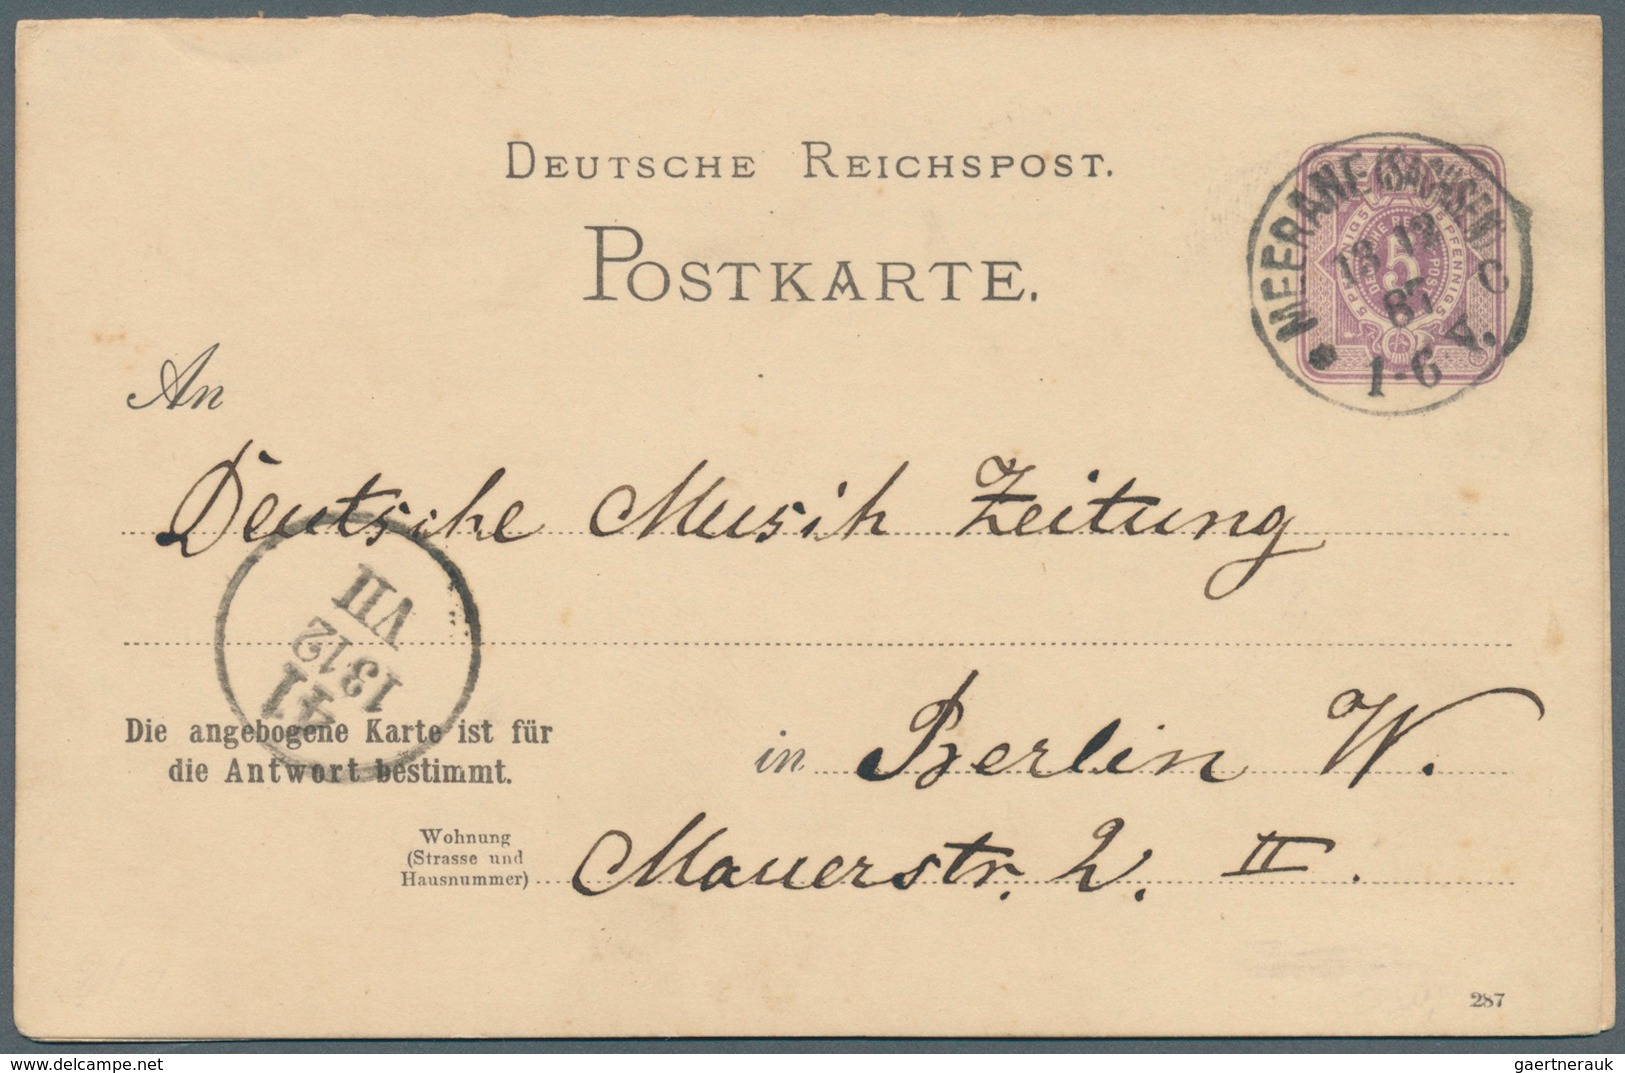 DEUTSCHE REICHSPOST.
POSTKARTE.
MEERANE (SACHSEN)
13 12
87
1-6 V.
C
5
An
Deutsche Musik Zeitung
VII
13 12
41
Die angebogene Karte ist für
die Antwort bestimmt.
in Berlin W.
Wohnung
(Strasse und
Hausnummer)
Mauerstr. 2. II.
287
www.delcampe.net
gaertnerauk